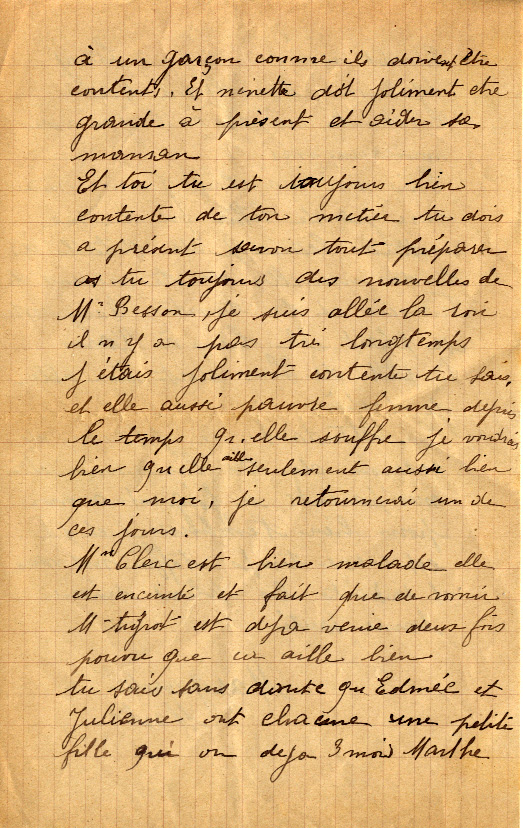 à un garçon comme ils doivent être
contents. Et ninette doit joliment etre
grande à présent et aider sa
manman
Et toi tu est toujours bien
contente de ton metier tu dois
a présent savoir tout préparer
as tu toujours des nouvelles de
Mr Besson, je suis allée la voir
il n y a pas très longtemps
j étais joliment contente tu sais,
et elle aussi pauvre femme depuis
le temps qu,elle souffre je voudrais
bien qu elle aille seulement aussi bien
que moi, je retournerai un de
ces jours.
Mm Clerc est bien malade elle
est enceinte et fait que de vomir
M est deja venue deux fois
pouvu que ca aille bien
tu sais sans doute qu Edmée et
Julienne ont chacune une petite
fille qui on deja 3 mois Marthe